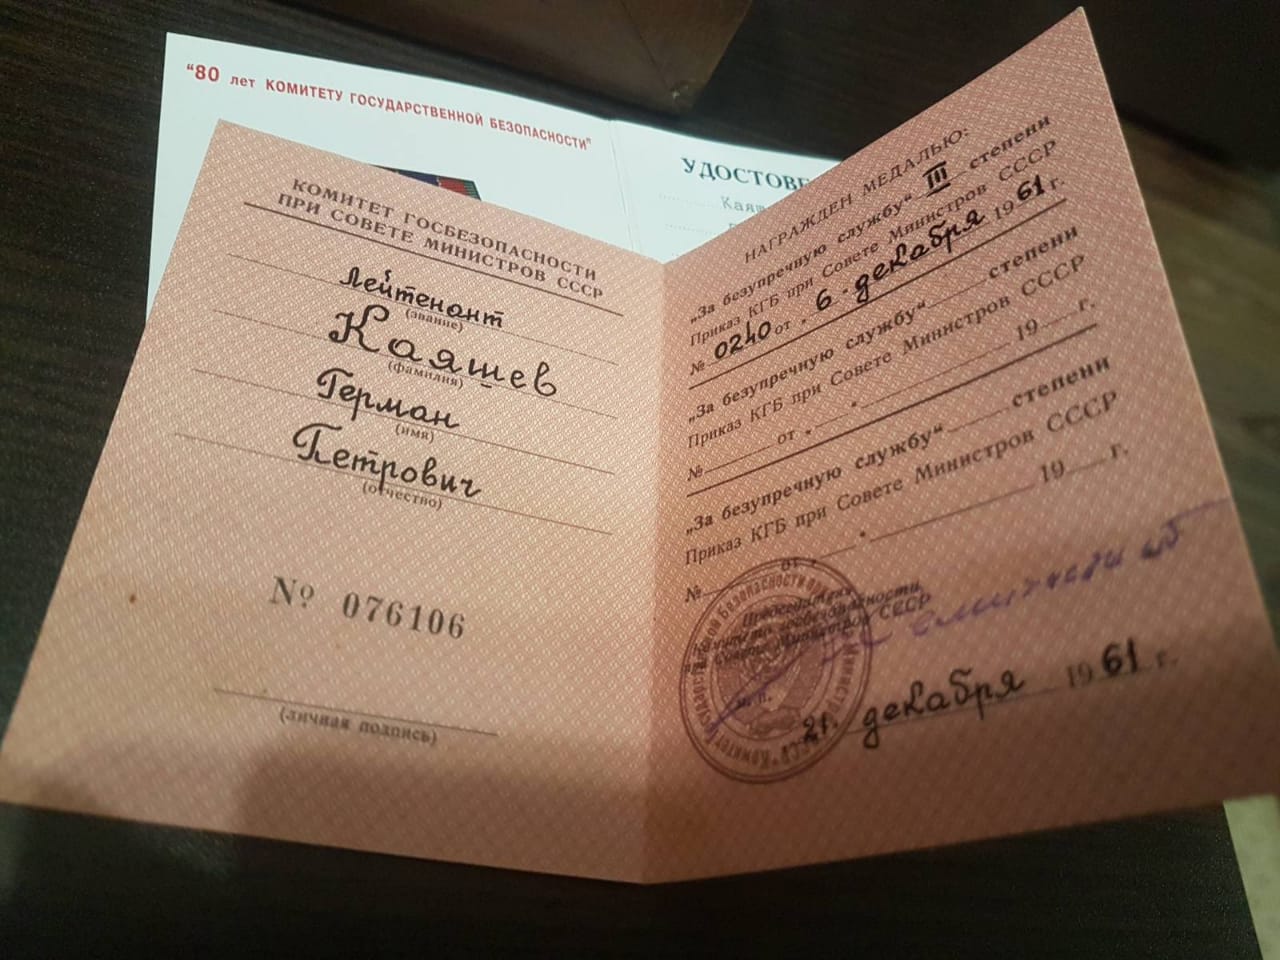 "80 лет КОМИТЕТУ ГОСУДАРСТВЕННОЙ БЕЗОПАСНОСТИ"
УДОСТОВЕ
Каяш
КОМИТЕТ ГОСБЕЗОПАСНОСТИ
ПРИ СОВЕТЕ МИНИСТРОВ СССР
Лейтенант
(звание)
Каяшев
(фамилия)
Герман
(имя)
Петрович
(отчество)
№ 076106
(личная подпись)
НАГРАЖДЕН МЕДАЛЬЮ:
„За безупречную службу“ III степени
Приказ КГБ при Совете Министров СССР
№ 0240 от „ 6 " декабря 1961 г.
„За безупречную службу“ степени
Приказ КГБ при Совете Министров СССР
№ от „ " 19 г.
„За безупречную службу“ степени
Приказ КГБ при Совете Министров СССР
№ от „ " 19 г.
Председатель
Комитета госбезопасности
при Совете Министров СССР
М. П.
21. декабря 1961 г.